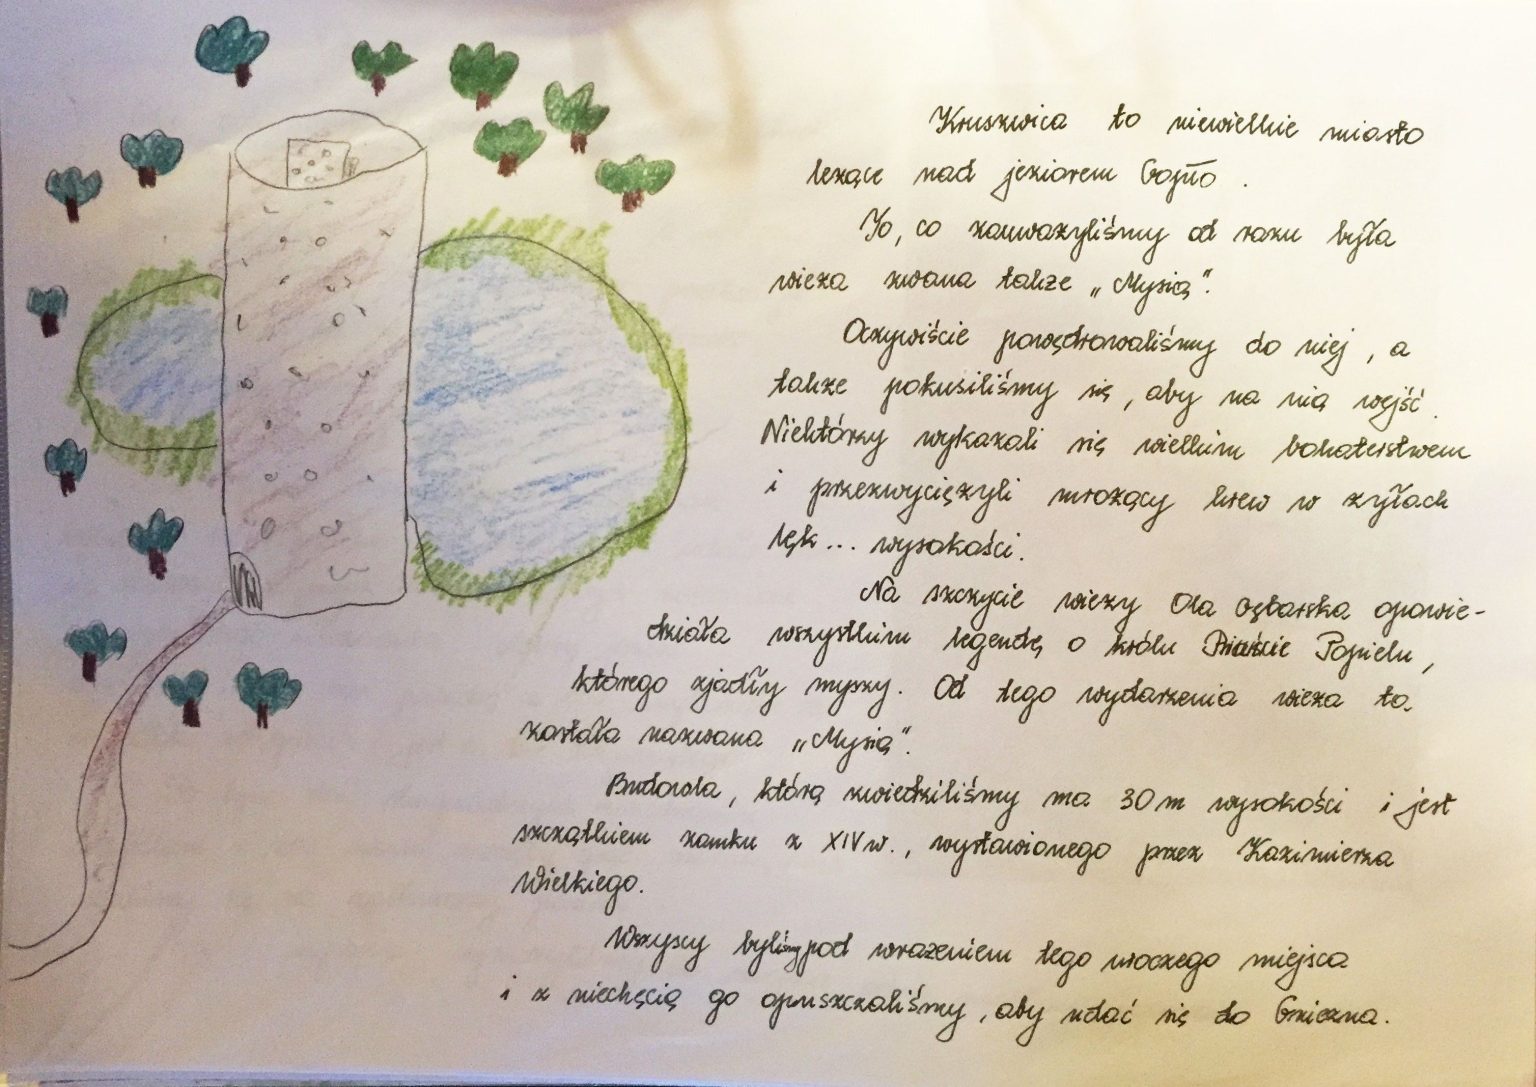 Kruszwica to niewielkie miasto
leżące nad jeziorem Gopło.
To, co zauważyliśmy od razu była
wieża zwana także „Mysią".
Oczywiście powędrowaliśmy do niej, a
także pokusiliśmy się, aby na nią wejść.
Niektórzy wykazali się wielkim bohaterstwem
i przezwyciężyli mrożący krew w żyłach
lęk... wysokości.
Na szczycie wieży Ola opowie-
działa wszystkim legendę o królu Popielu,
którego zjadły myszy. Od tego wydarzenia wieża ta
została nazwana „Mysią".
Budowla, którą zwiedziliśmy ma 30 m wysokości i jest
szczątkiem zamku z XIV w., wystawionego przez Kazimierza
Wielkiego.
Wszyscy byliśmy pod wrażeniem tego uroczego miejsca
i z niechęcią go opuszczaliśmy, aby udać się do Gniezna.